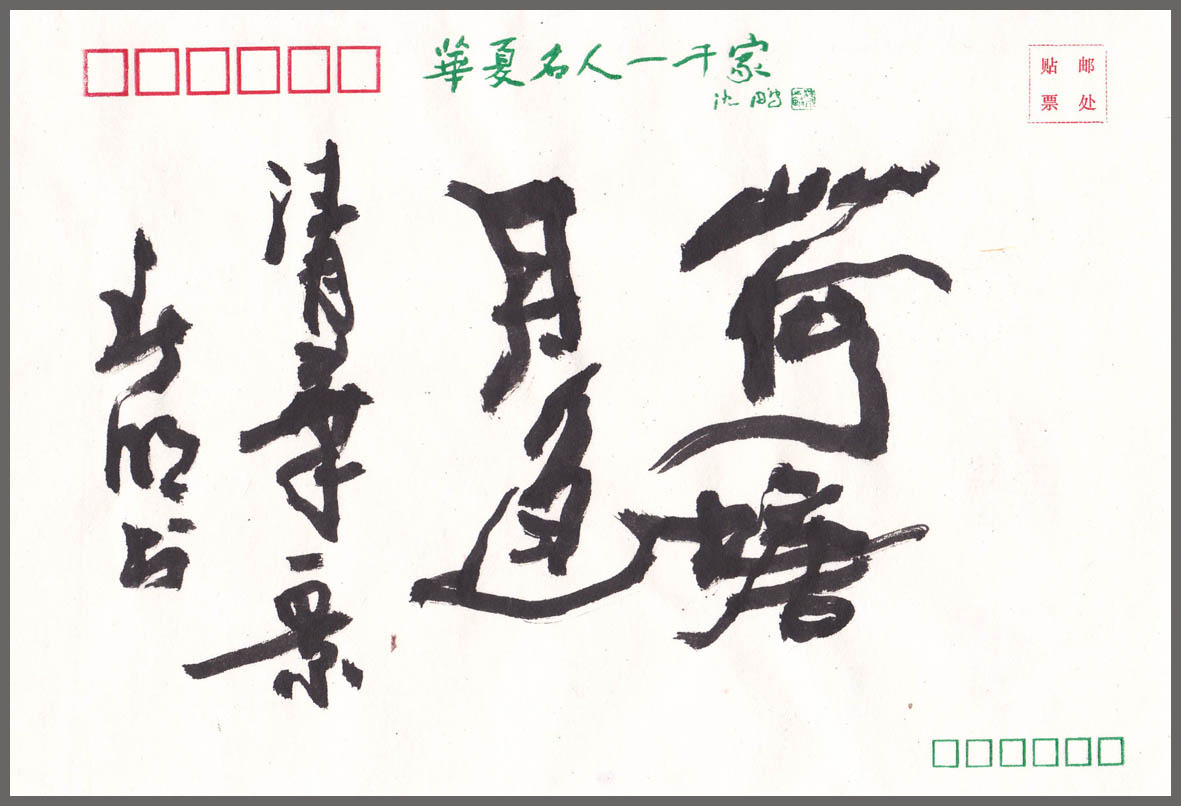 華夏名人一千家
沈鹏
贴邮
票处
荷塘
月色
清華一景
明书